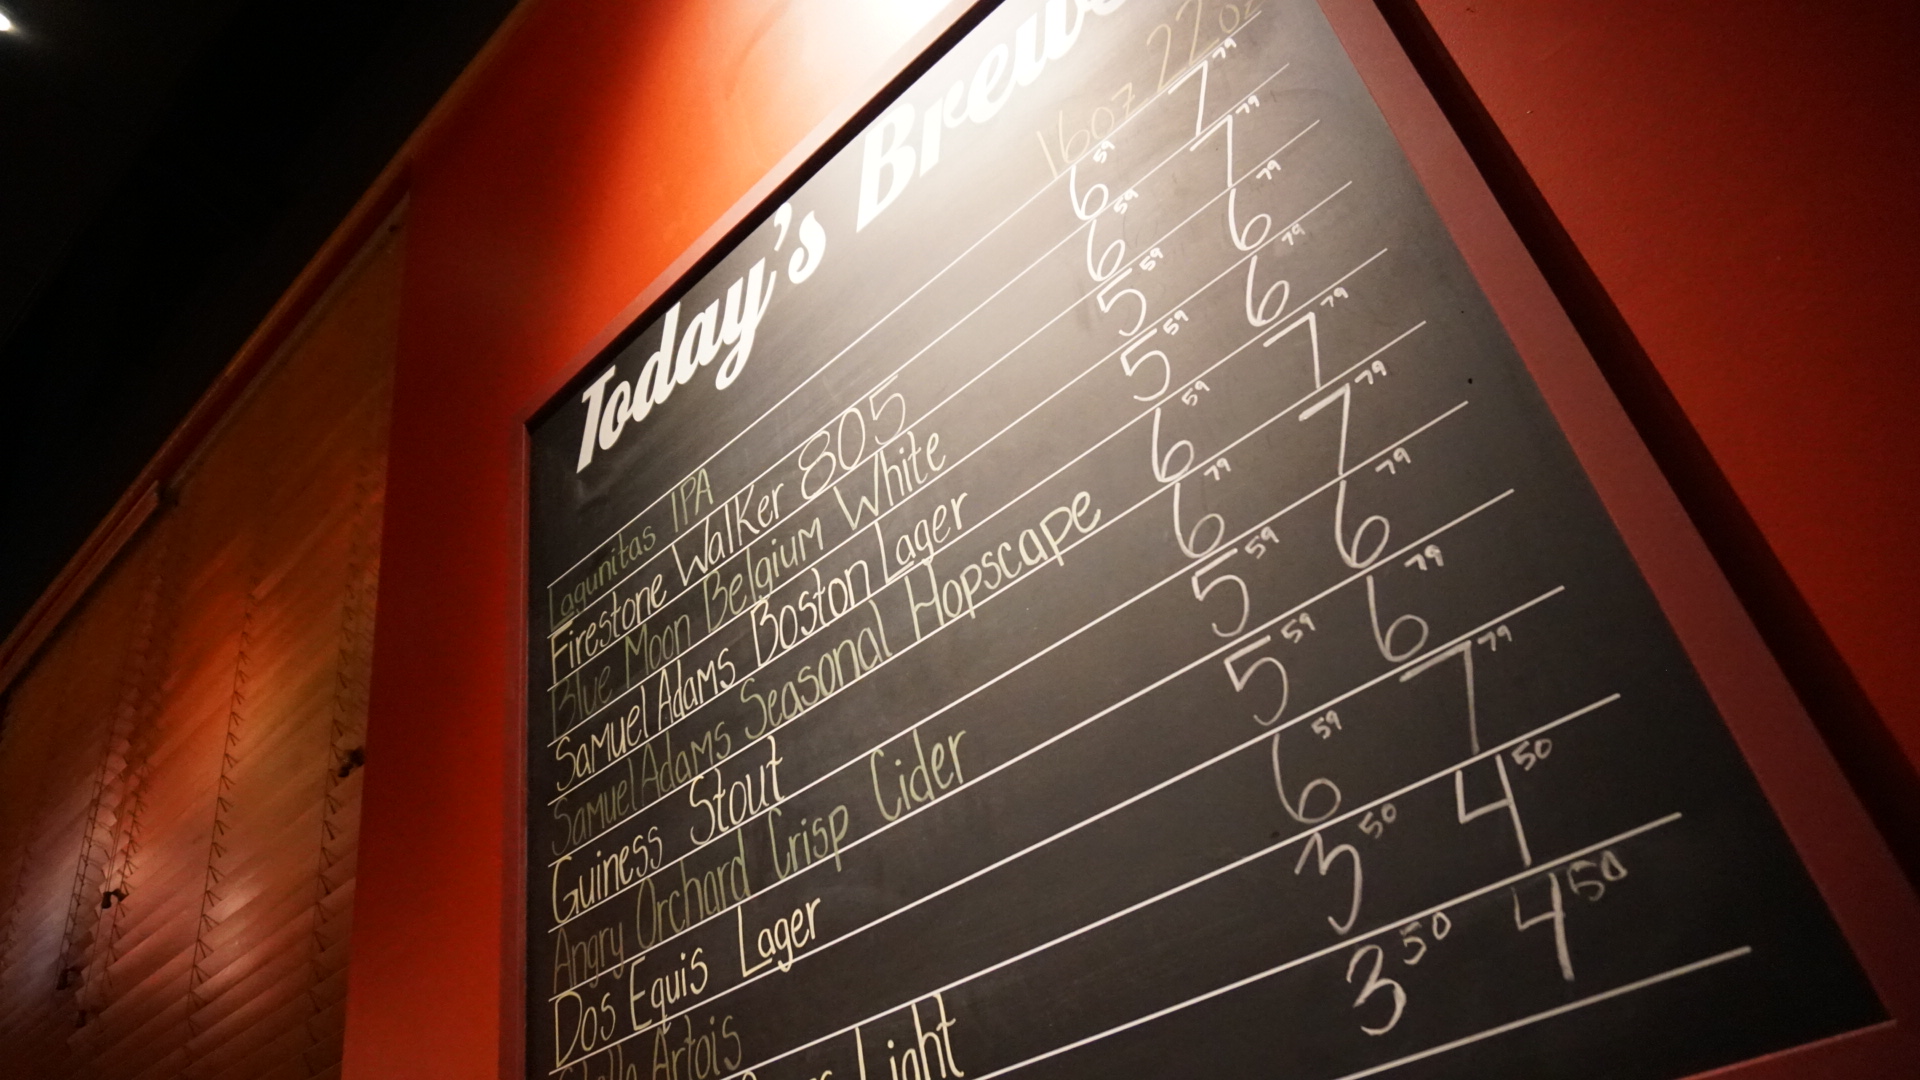 Today's Brews
16oz 22oz
Lagunitas IPA 6 59 7 79
Firestone Walker 805 6 59 7 79
Blue Moon Belgium White 5 59 6 79
Samuel Adams Boston Lager 5 59 6 79
Samuel Adams Seasonal Hopscape 6 59 7 79
Guiness Stout 6 79 7 79
Angry Orchard Crisp Cider 5 59 6 79
Dos Equis Lager 5 59 6 79
Stella Artois 6 59 7 79
Light 3 50 4 50
3 50 4 50